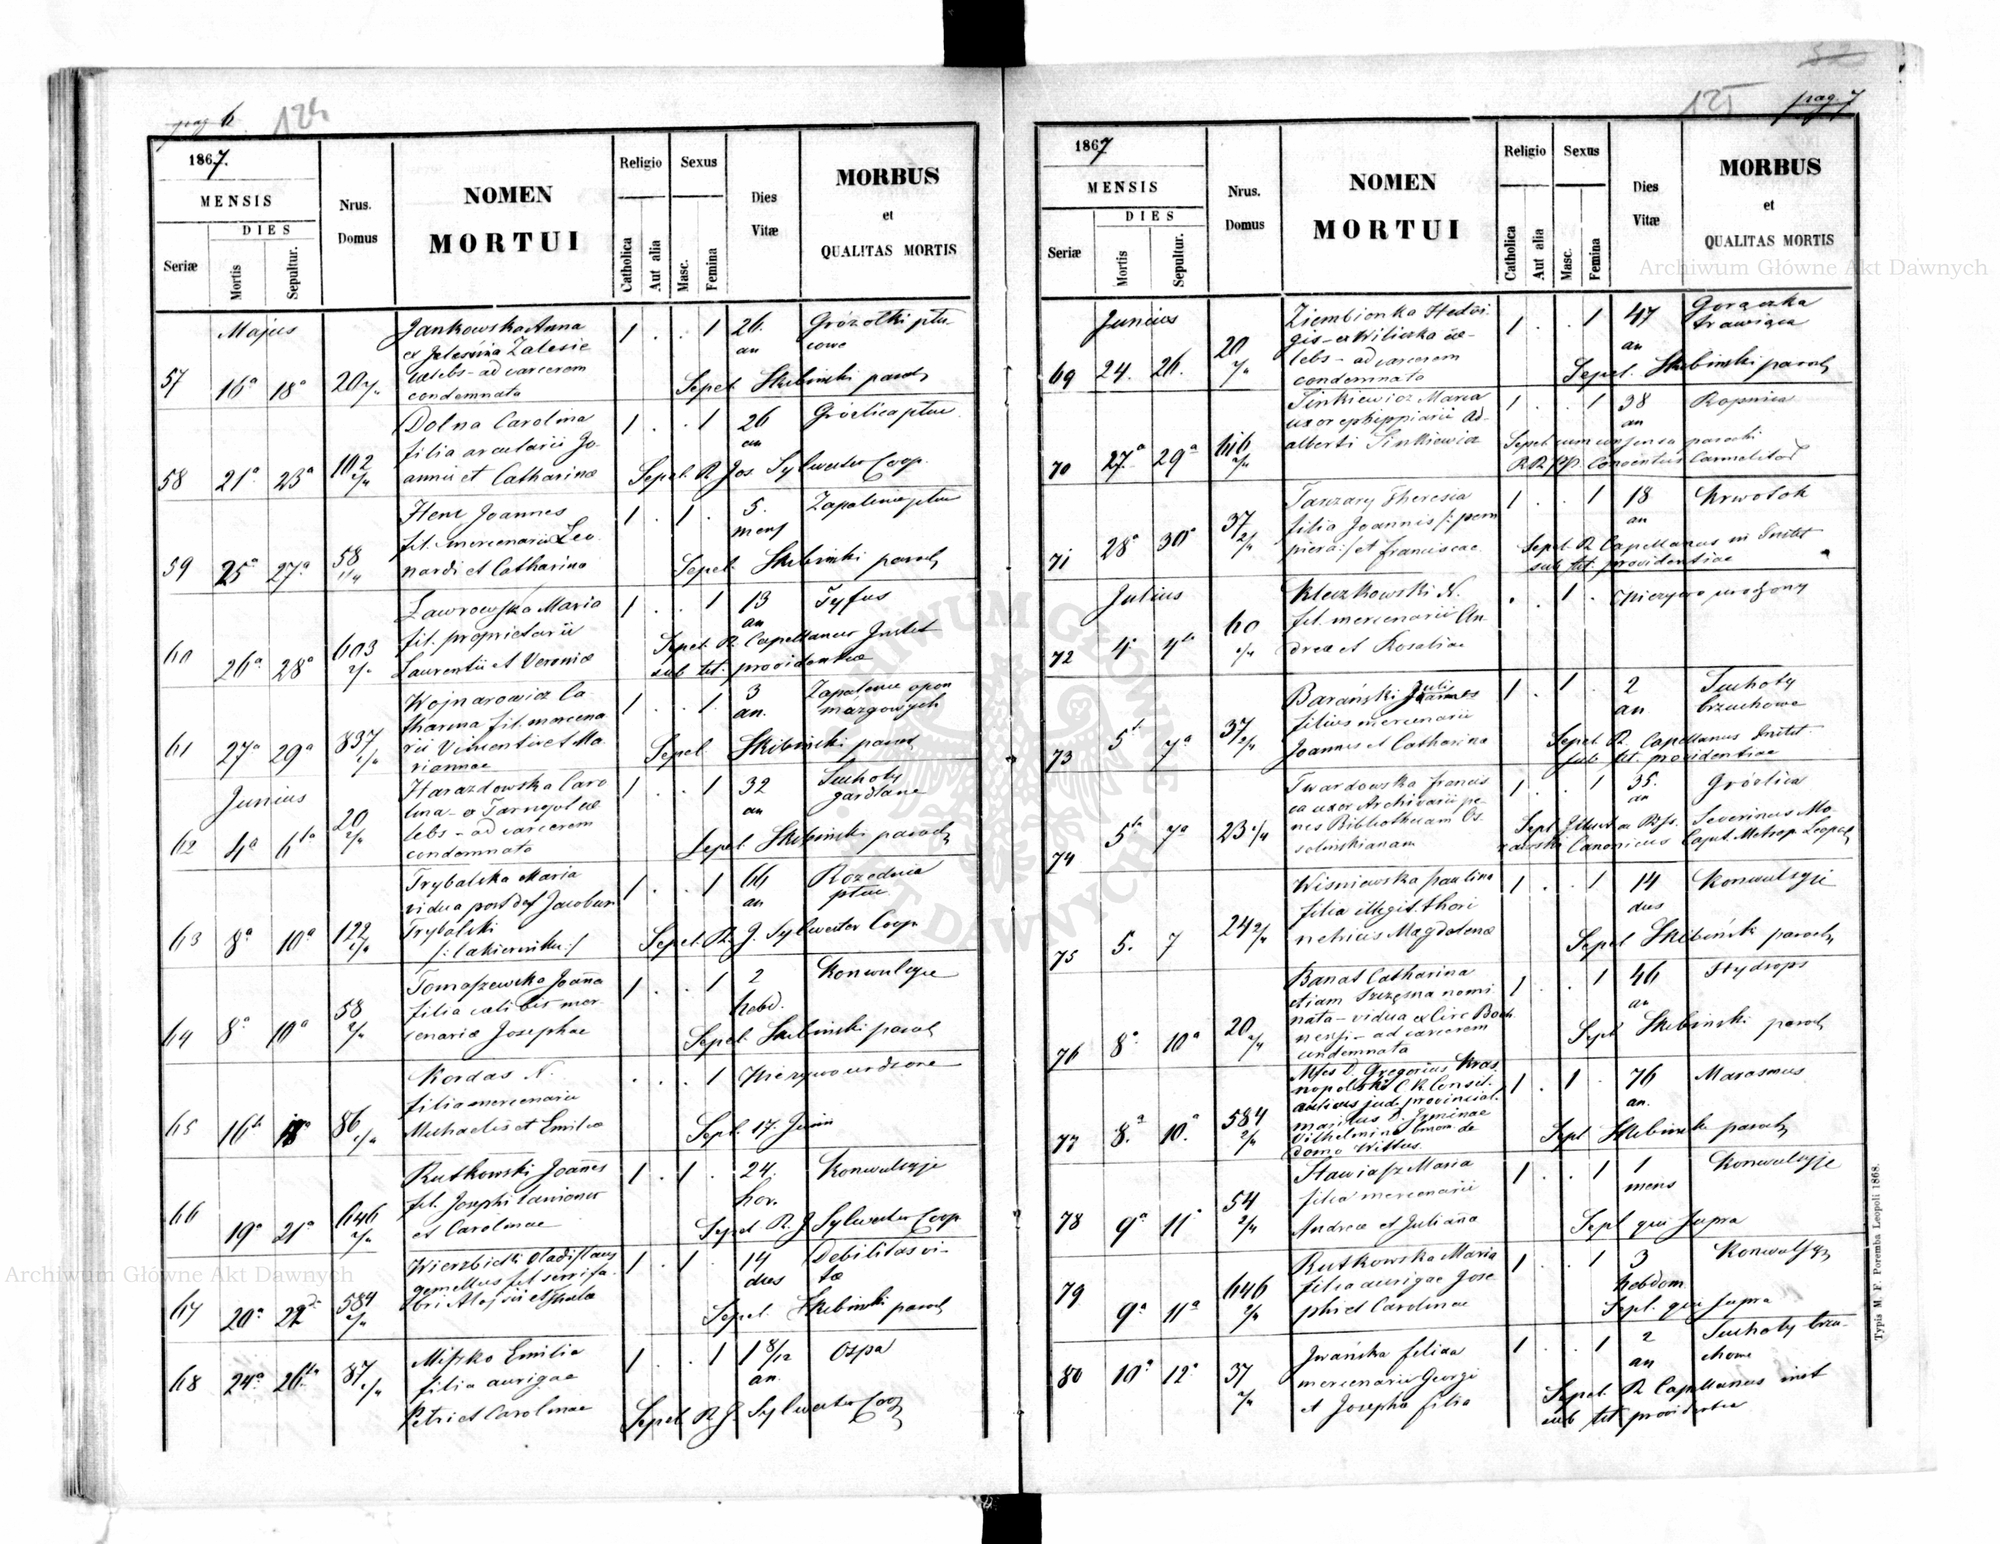 pag 6 124
1867.
MENSIS
DIES
Seriæ
Mortis
Sepultur.
Nrus.
Domus
NOMEN
MORTUI
Religio
Catholica
Aut alia
Sexus
Masc.
Femina
Dies
Vitæ
MORBUS
et
QUALITAS MORTIS
Majus
57 16ª 18ª 20
Jankowska Anna
ex Zalesie
caelebs - ad carcerem
condemnata
1 . . 1 26. an
Sepel. Skibinski paroch
58 21ª 23ª 102
Dolna Carolina
filia arcularii Jo
annis et Catharinæ
1 . . 1 26 an Gróźlica płuc
Sepel. R Jos Sylwester Coop.
59 25ª 27ª 58
Henr Joannes
fil. mercenarii Leo
nardi et Catharina
1 . 1 . 5. mens Zapalenie płuc
Sepel. Skibinski paroch
60 26ª 28ª 603
Lawrowska Maria
fil. proprietarii
Laurentii et Veroniæ
1 . . 1 13 an Tyfus
Sepel. R. Capellanus Instit
sub tit. providentiæ
61 27ª 29ª 837
Wojnarowicz Ca
tharina fil. mercena
rii Vincentii et Ma
riannae
1 . . 1 3 an. Zapalenie opon
mozgowych
Sepel. Skibinski paroch
Junius
62 4ª 6ta 20
Harazdowska Caro
lina - ex Tarnopol cæ
lebs - ad carcerem
condemnata
1 . . 1 32 an Suchoty
gardlane
Sepel Skibinski paroch
63 8ª 10ª 122
Trybalska Maria
vidua post def Jacobum
Trybalski
1 . . 1 66 an Rozedma
płuc
Sepel. R. J. Sylwester Coop
64 8ª 10ª 58
Tomaszewska Joanna
filia cælibis mer
cenariæ Josephae
1 . . 1 2 hebd. Konwulsye
Sepel. Skibinski paroch
65 16ta 18ª 86
Kordas N.
filia mercenarii
Michaelis et Emiliæ
. . . 1 Nieżywo urodzone
Sepel. 17. Junii
66 19ª 21ª 646
Rutkowski Joannes
fil. Josephi
et Carolinae
1 . 1 . 24. hor. Konwulsyje
Sepel. R. J Sylwester Coop
67 20ª 22 584
Wierzbicki Vladislaus
gemellus fil
1 . 1 . 14 dies Debilitas vi-
tæ
Sepel. Skibinski paroch
68 24ª 26ta 87
Miszko Emilia
filia aurigae
Petri et Carolinae
1 . . 1 1 8/12 an. Ospa
Sepel. R J. Sylwester Coop
52
125 pag. 7
1867
MENSIS
DIES
Seriæ
Mortis
Sepultur.
Nrus.
Domus
NOMEN
MORTUI
Religio
Catholica
Aut alia
Sexus
Masc.
Femina
Dies
Vitæ
MORBUS
et
QUALITAS MORTIS
Junius
69 24. 26. 20
Ziembionka Hedvi
gis - ex Wiliczka cæ-
lebs - ad carcerem
condemnata
1 . . 1 47 an Gorączka
trawiąca
Sepel. Skibinski paroch
70 27ª 29ª 616
Sinkiewicz Maria
uxor ephippiarii Ad-
alberti Sinkiewicz
1 . . 1 38 an Ropnica
Sepel cum consensu parochi
R R PP. Conventus Carmelitar
71 28ª 30ª 37
Theresia
filia Joannis
et Franciscae
1 . . 1 18 an Krwotok
Sepel. R Capellanus in Instit
sub tit. providentiae
Julius
72 4. 4ta 60
Kluczkowski N.
fil. mercenarii An
dreæ et Rosaliae
. . 1 . nieżywo urodzony
73 5ta 7ª 37
Barański Julis
filius mercenarii
Joannis et Catharina
1 . 1 . 2 an. Suchoty
brzuchowe
Sepel. R. Capellanus Instit
sub. tit. providentiae
74 5ta 7ª 23
Twardowska Francis
ca uxor Archivarii pe-
nes Bibliothecam Os-
solinskianam
1 . . 1 35. an Gróźlica
Canonicus Capit. Metrop. Leopol
75 5. 7 24
Wisniewska Paulina
filia illegit. thori
Magdalenæ
1 . . 1 14 dies Konwulsyje
Sepel Skibiński paroch
76 8ª 10ª 20
Banas Catharina
etiam Szczęsna nomi
nata - vidua ex Circ Boch
nensi - ad carcerem
condemnata
1 . . 1 46 an Hydrops
Sepel Skibinski paroch
77 8.ª 10.ª 584
D. Gregorius Kras
nopolski C. R. Consil.
jud. provincial.
maritus D. Herminae
Vilhelmina de
domo Wittus.
1 . 1 . 76 an. Marasmus
Sepel Skibinski paroch
78 9ª 11 54
Stawiasz Maria
filia mercenarii
Andreæ et Julianna
1 . . 1 1 mens Konwulsyje
Sepel qui supra
79 9ª 11ª 646
Rutkowska Maria
filia aurigae Jose
phi et Carolinae
1 . . 1 3 hebdom
Sepel. qui supra
80 10ª 12ª 37
Iwańska Felixa
mercenarii Georgi
et Josepha filia
1 . . 1 2 an Suchoty brzu-
chowe
Sepel. R Capellanus inst
sub tit providentiæ
Typis M. F. Poremba Leopoli 1868.
Archiwum Główne Akt Dawnych
Archiwum Główne Akt Dawnych
ARCHIWUM GŁÓWNE AKT DAWNYCH